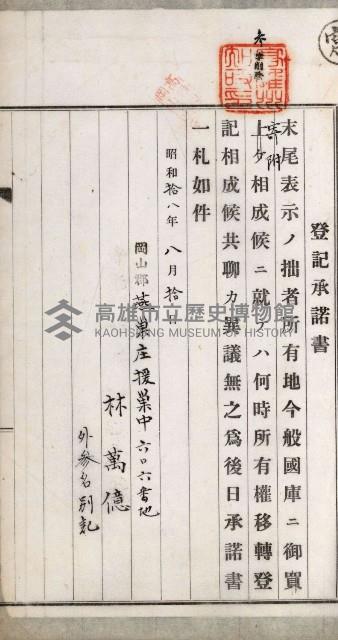 登記承諾書
末尾表示ノ拙者所有地今般國庫ニ御買
寄附
上ケ相成候ニ就テハ何時所有權移轉登
記相成候共聊カ異議無之爲後日承諾書
一札如件
昭和拾八年八月拾日
岡山郡燕巢庄援巢中六〇六番地
林萬億
外參名別記
高雄市立歷史博物館
KAOHSIUNG MUSEUM OF HISTORY